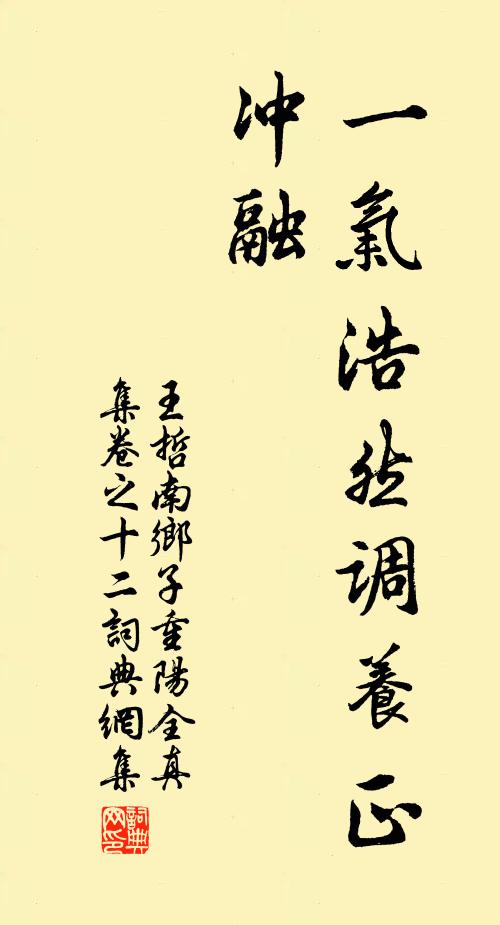 一氣浩然調養正
冲融
王哲南鄉子重陽全真
集卷之十二詞典網集
詞典
网印